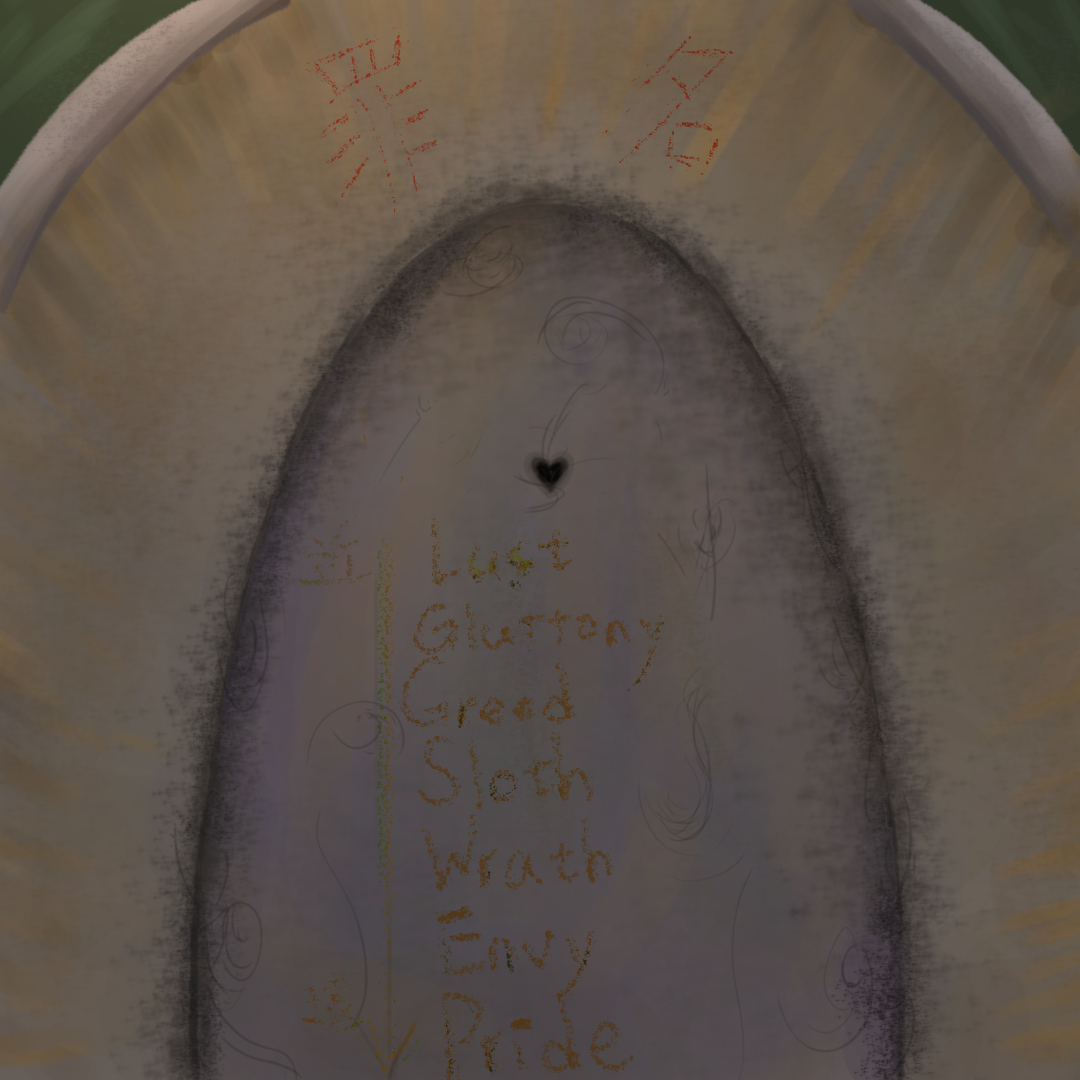 罪名
Lust
Gluttony
Greed
Sloth
Wrath
Envy
Pride